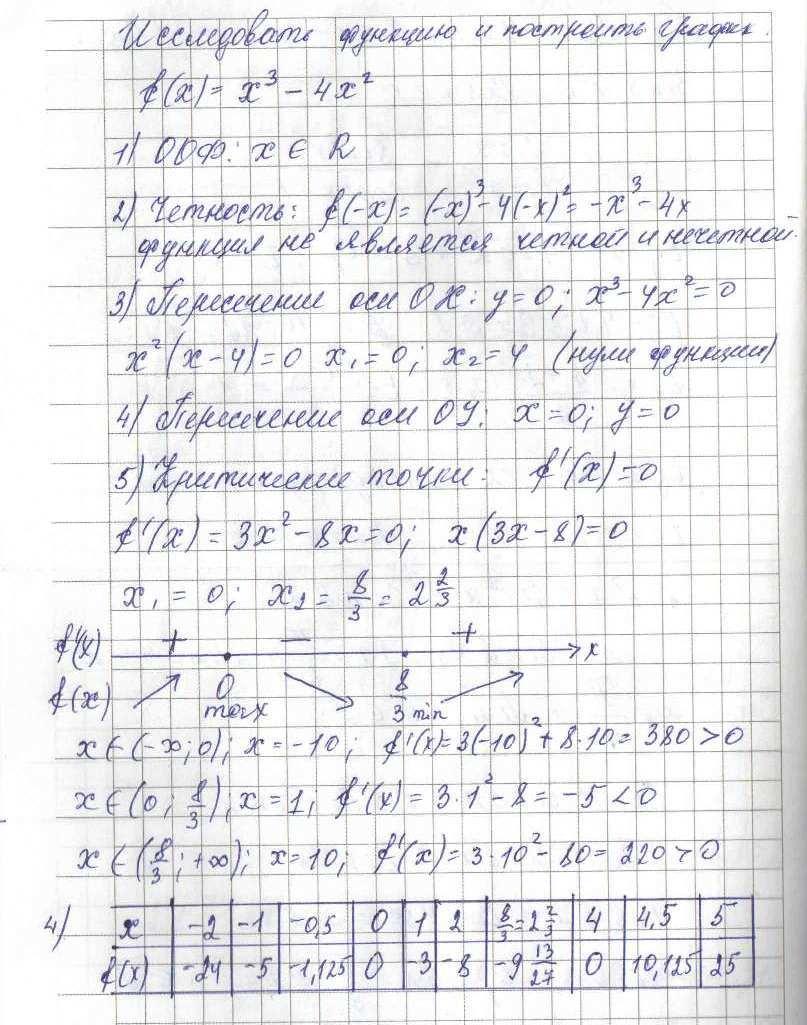 Исследовать функцию и построить график.
f(x) = x³ - 4x²
1) ООФ: x ∈ R
2) Четность: f(-x) = (-x)³ - 4(-x)² = -x³ - 4x
функция не является четной и нечетной.
3) Пересечение оси OX: y = 0; x³ - 4x² = 0
x²(x - 4) = 0 x₁ = 0; x₂ = 4 (нули функции)
4) Пересечение оси OY: x = 0; y = 0
5) Критические точки: f'(x) = 0
f'(x) = 3x² - 8x = 0; x(3x - 8) = 0
x₁ = 0; x₂ = 8/3 = 2 2/3
f'(x) + − + x
f(x) 0 8/3
max min
x ∈ (-∞; 0); x = -10; f'(x) = 3(-10)² + 8·10 = 380 > 0
x ∈ (0; 8/3); x = 1; f'(x) = 3·1² - 8 = -5 < 0
x ∈ (8/3; +∞); x = 10; f'(x) = 3·10² - 80 = 220 > 0
4) x -2 -1 -0,5 0 1 2 8/3 = 2 2/3 4 4,5 5
f(x) -24 -5 -1,125 0 -3 -8 -9 13/27 0 10,125 25